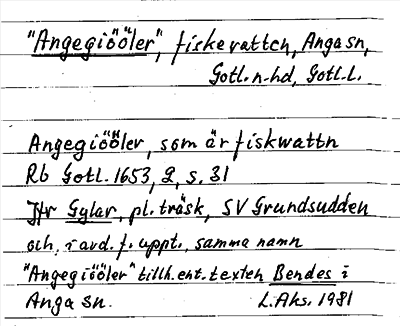 "Angegiööler", fiskevatten, Anga sn,
Gotl. n. hd, Gotl. L.
Angegiööler, som är fiskwattn
Rb Gotl. 1653, 2, s. 31
Jfr Gylar, pl. träsk, SV Grundsudden
och, i avd. f. uppt., samma namn
"Angegiööler" tillh. enl. texten Bendes i
Anga sn. L. Ahs. 1981